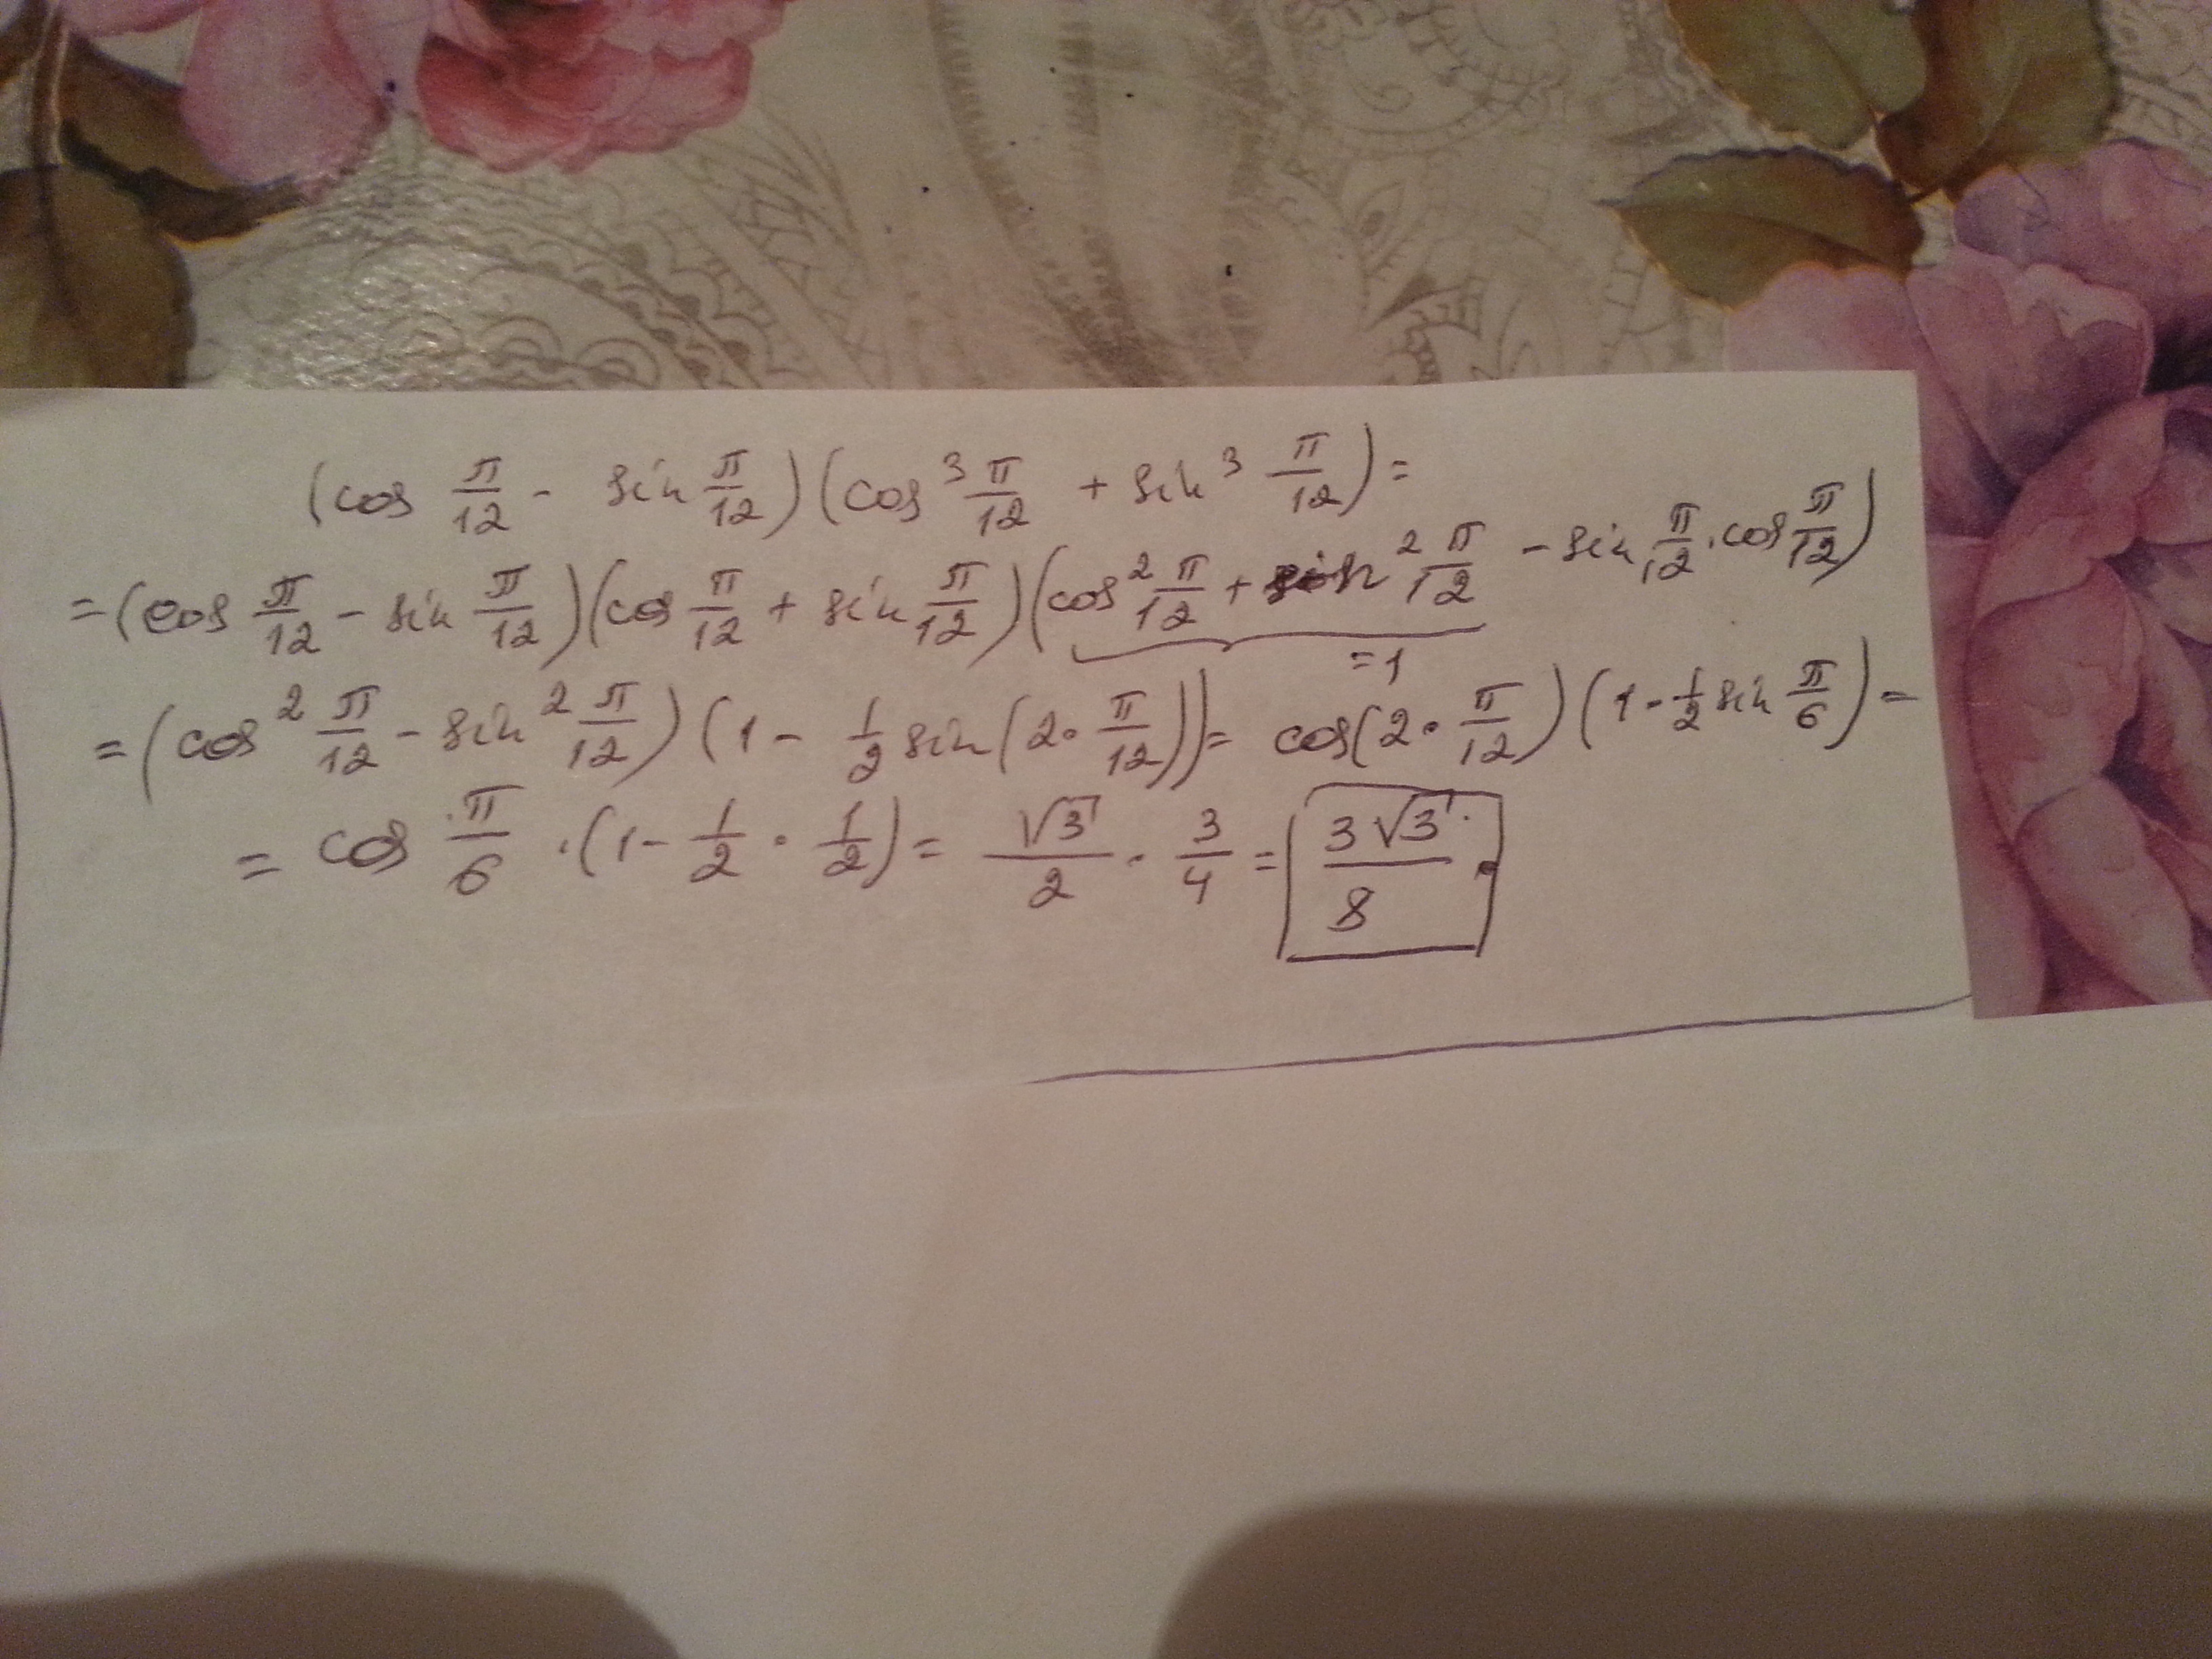 (cos π/12 - sin π/12)(cos³ π/12 + sin³ π/12) =
= (cos π/12 - sin π/12)(cos π/12 + sin π/12)(cos² π/12 + sin² π/12 - sin π/12 · cos π/12)
= 1
= (cos² π/12 - sin² π/12)(1 - 1/2 sin(2 · π/12)) = cos(2 · π/12)(1 - 1/2 sin π/6) =
= cos π/6 · (1 - 1/2 · 1/2) = √3/2 · 3/4 = 3√3/8.